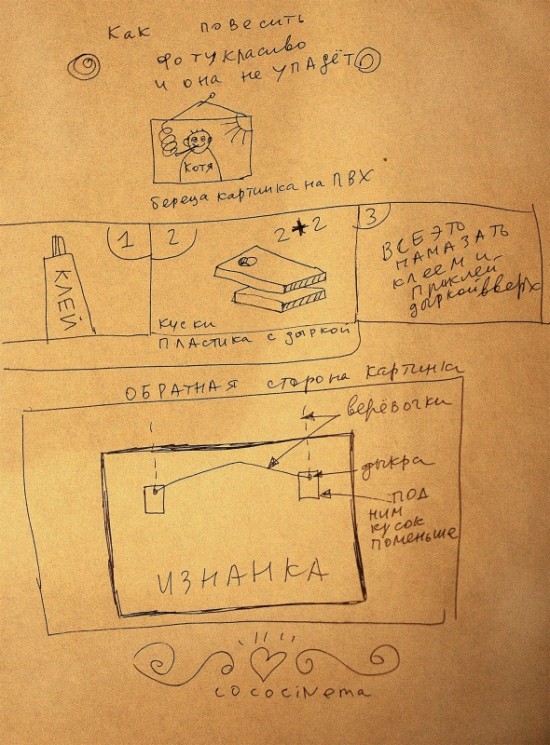 Как повесить
фоту красиво
и она не упадёт
Котя
береца картинка на ПВХ
1
КЛЕЙ
2
2*2
куски
пластика с дыркой
3
ВСЕ ЭТО
НАМАЗАТЬ
КЛЕЕМ И
ПРИКЛЕЙ
дыркой вверх
ОБРАТНАЯ сторона картинка
верёвочки
дыкра
под
ним
кусок
поменьше
ИЗНАНКА
cococinema